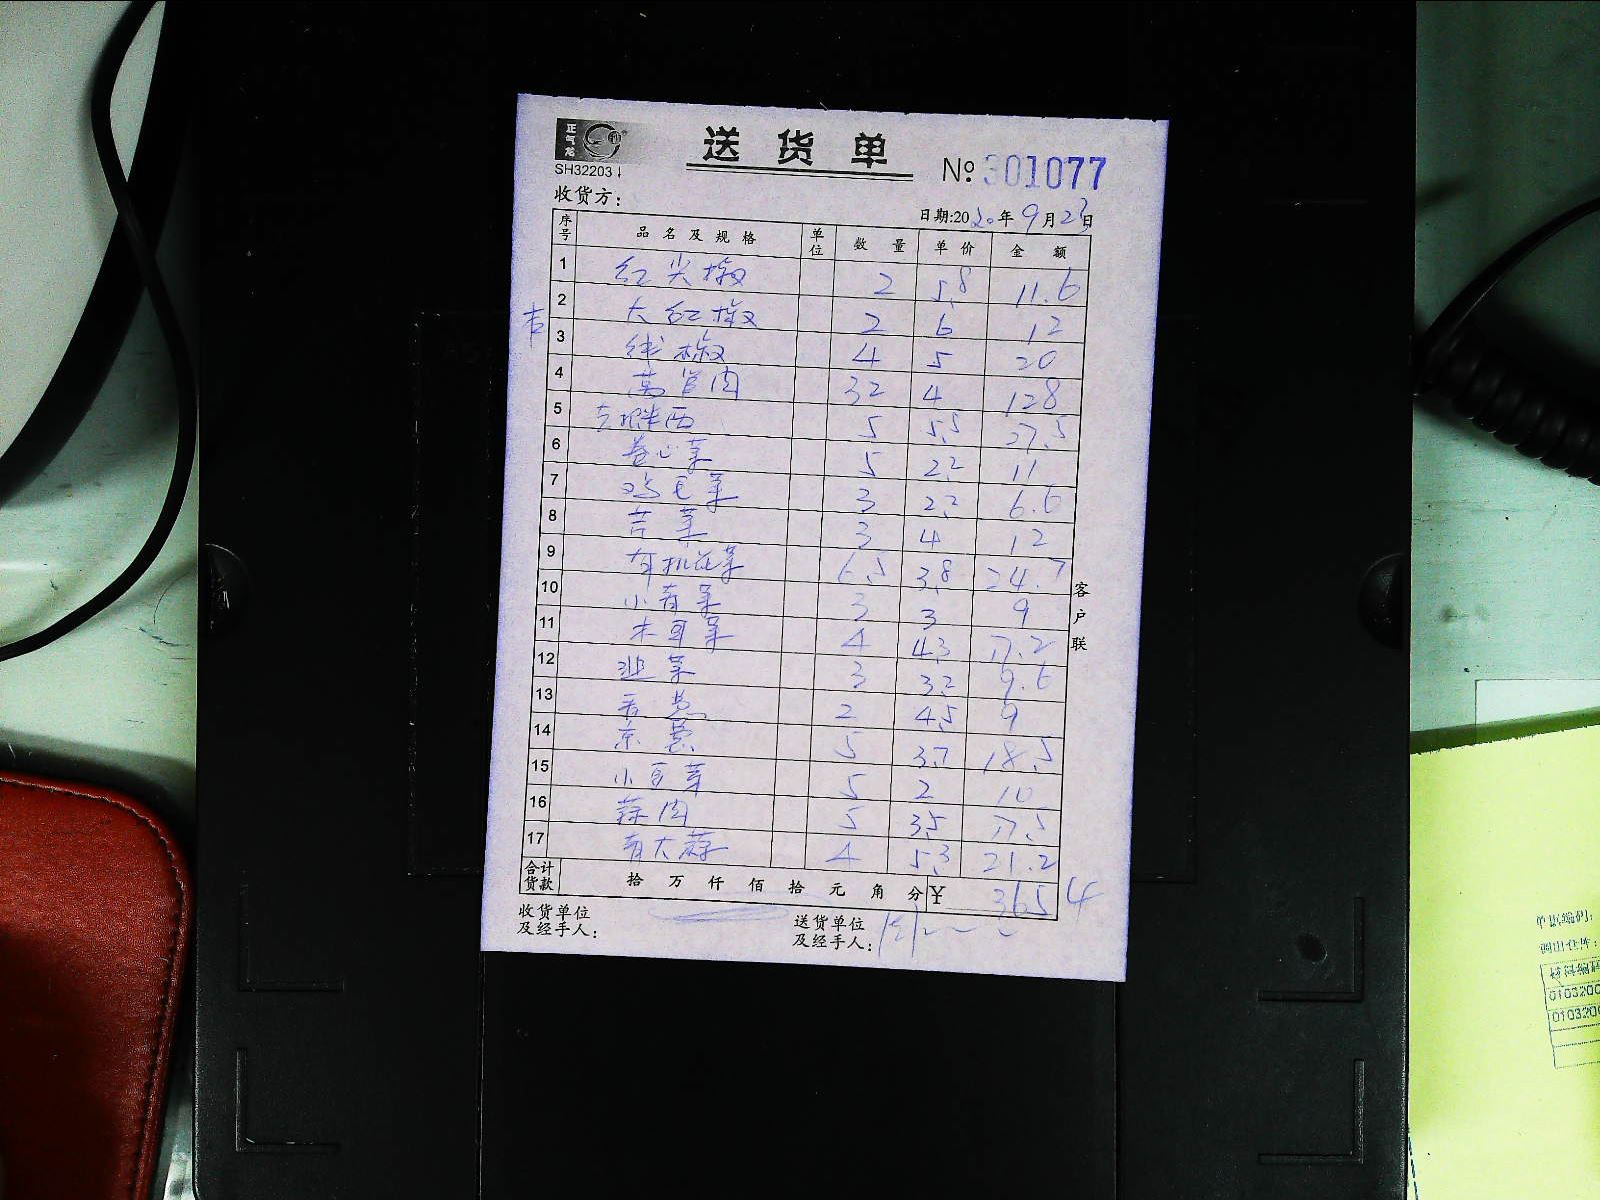 正气龙
送货单
SH32203
№ 301077
收货方：
日期:2020年9月23日
序号 品名及规格 单位 数量 单价 金额
1 红尖椒 2 5.8 11.6
2 大红椒 2 6 12
3 线椒 4 5 20
4 莴笋肉 32 4 128
5 去皮西 5 5.5 27.5
6 卷心菜 5 2.2 11
7 鸡毛菜 3 2.2 6.6
8 苦菜 3 4 12
9 有机花菜 6.5 3.8 24.7
10 小青菜 3 3 9
11 木耳菜 4 4.3 17.2
12 韭菜 3 3.2 9.6
13 香葱 2 4.5 9
14 京葱 5 3.7 18.5
15 小豆芽 5 2 10
16 蒜肉 5 3.5 17.5
17 青大蒜 4 5.3 21.2
合计货款 拾万仟佰拾元角分 ¥ 365.4
客户联
收货单位及经手人：
送货单位及经手人：
010320
010320